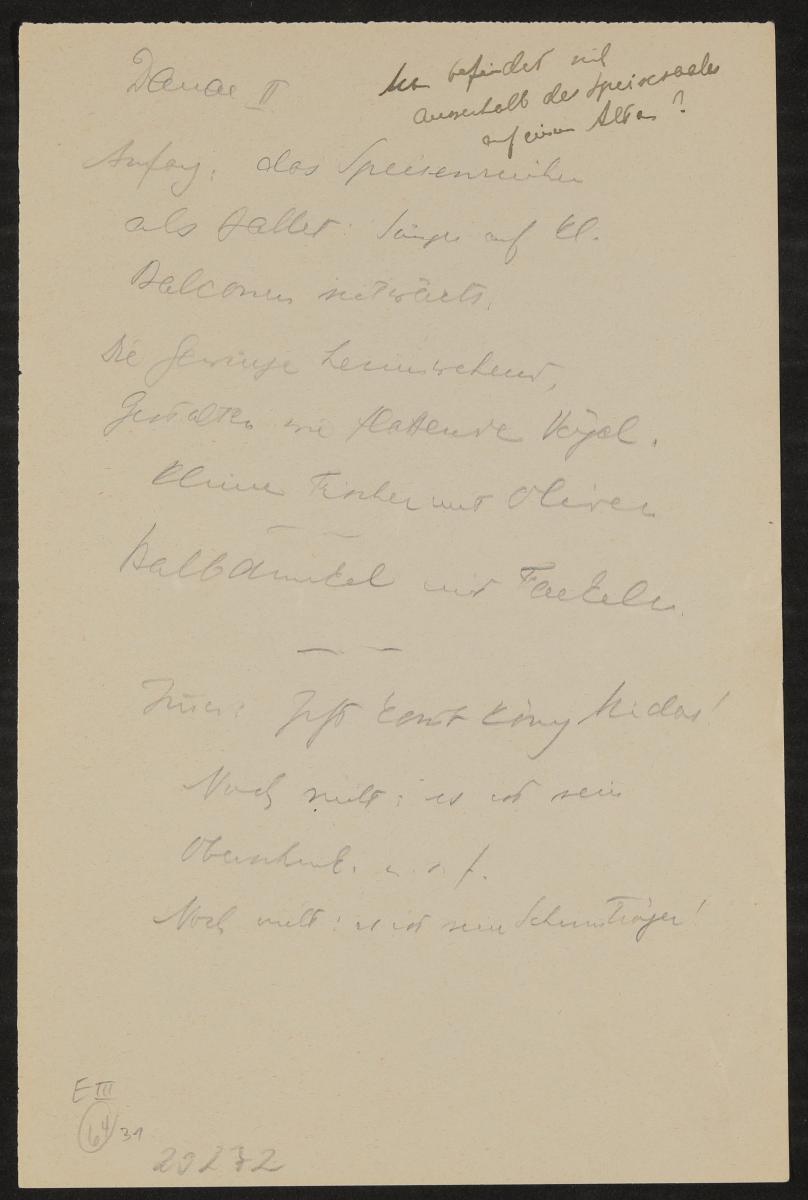 Danae II
Man befindet sich
ausserhalb des Speisesaales
auf einem Altan?
Anfang: das Speisenreichen
als Ballet: Sänger auf kl.
Balconen seitwärts.
Die Gewürze
Gestalten wie flatternde Vögel.
Kleine Fischer mit Oliven
Halbdunkel mit Fackeln.
Jetzt kommt König Midas!
Noch nicht: es ist sein
Oberschenk. u. s. f.
Noch nicht: es ist sein Schirmträger!
E III
64/31
20272